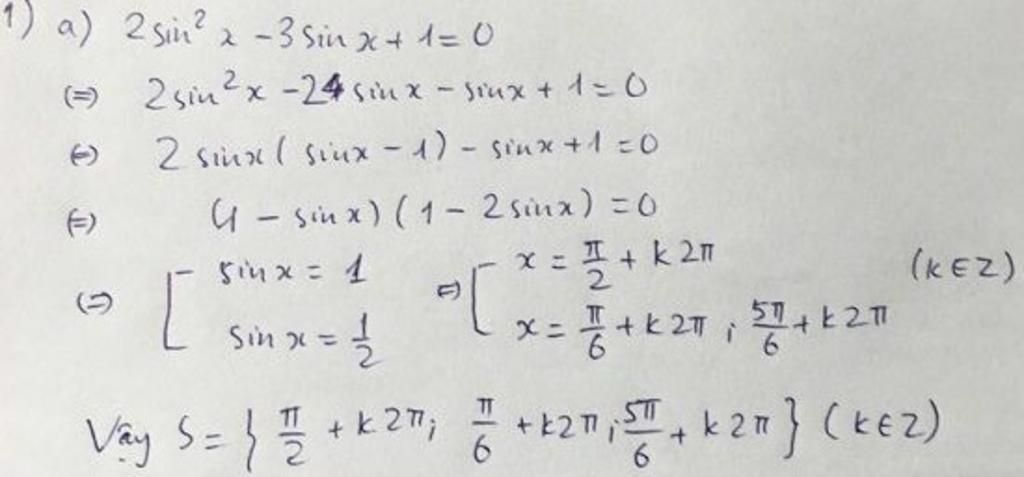 1) a) 2 sin² x - 3 sin x + 1 = 0
(=) 2 sin² x - 2 sin x - sin x + 1 = 0
(=) 2 sin x ( sin x - 1) - sin x + 1 = 0
(=) (1 - sin x) (1 - 2 sin x) = 0
(=) [ sin x = 1 (=) [ x = π/2 + k2π (k ∈ Z)
sin x = 1/2 x = π/6 + k2π ; 5π/6 + k2π
Vậy S = { π/2 + k2π; π/6 + k2π; 5π/6 + k2π } (k ∈ Z)